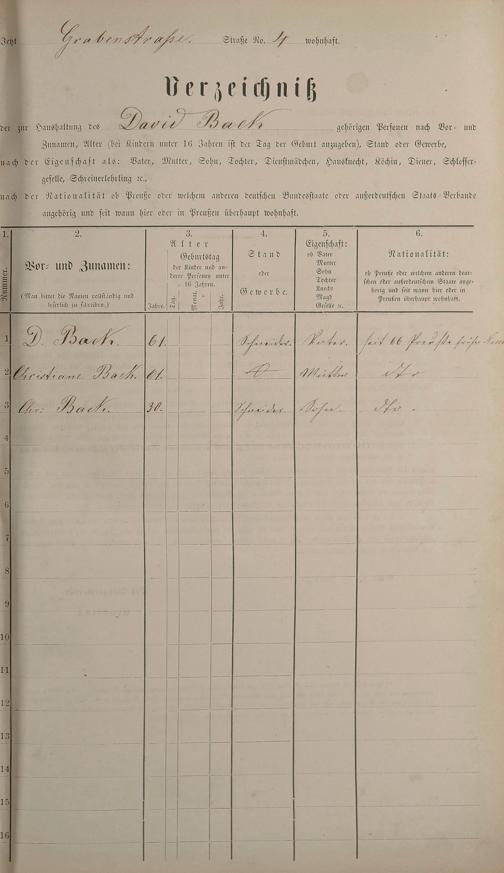 Jetzt Grabenstraße. Straße No. 4 wohnhaft.
Verzeichniß
der zur Haushaltung des David Back gehörigen Personen nach Vor- und
Zunamen, Alter (bei Kindern unter 16 Jahren ist der Tag der Geburt anzugeben), Stand oder Gewerbe,
nach der Eigenschaft als: Vater, Mutter, Sohn, Tochter, Dienstmädchen, Hausknecht, Köchin, Diener, Schlosser-
geselle, Schreinerlehrling ꝛc.,
nach der Nationalität ob Preuße oder welchem anderen deutschen Bundesstaate oder außerdeutschen Staats-Verbande
angehörig und seit wann hier oder in Preußen überhaupt wohnhaft.
1. 2. 3. 4. 5. 6.
Nummer.
Vor- und Zunamen:
(Man bittet die Namen vollständig und
leserlich zu schreiben.)
Alter
Geburtstag
der Kinder und an-
derer Personen unter
16 Jahren.
Jahre. Tag. Monat. Jahr.
Stand
oder
Gewerbe.
Eigenschaft:
ob Vater
Mutter
Sohn
Tochter
Knecht
Magd
Geselle ꝛc.
Nationalität:
ob Preuße oder welchem anderen deut-
schen oder außerdeutschen Staate ange-
hörig und seit wann hier oder in
Preußen überhaupt wohnhaft.
1 D. Back. 61. Schneider. Vater. seit 66 Preuße früher
2 Christiane Back. 61. Mutter dto
3 Chr: Back. 30. Schneider Sohn. dto.
4
5
6
7
8
9
10
11
12
13
14
15
16